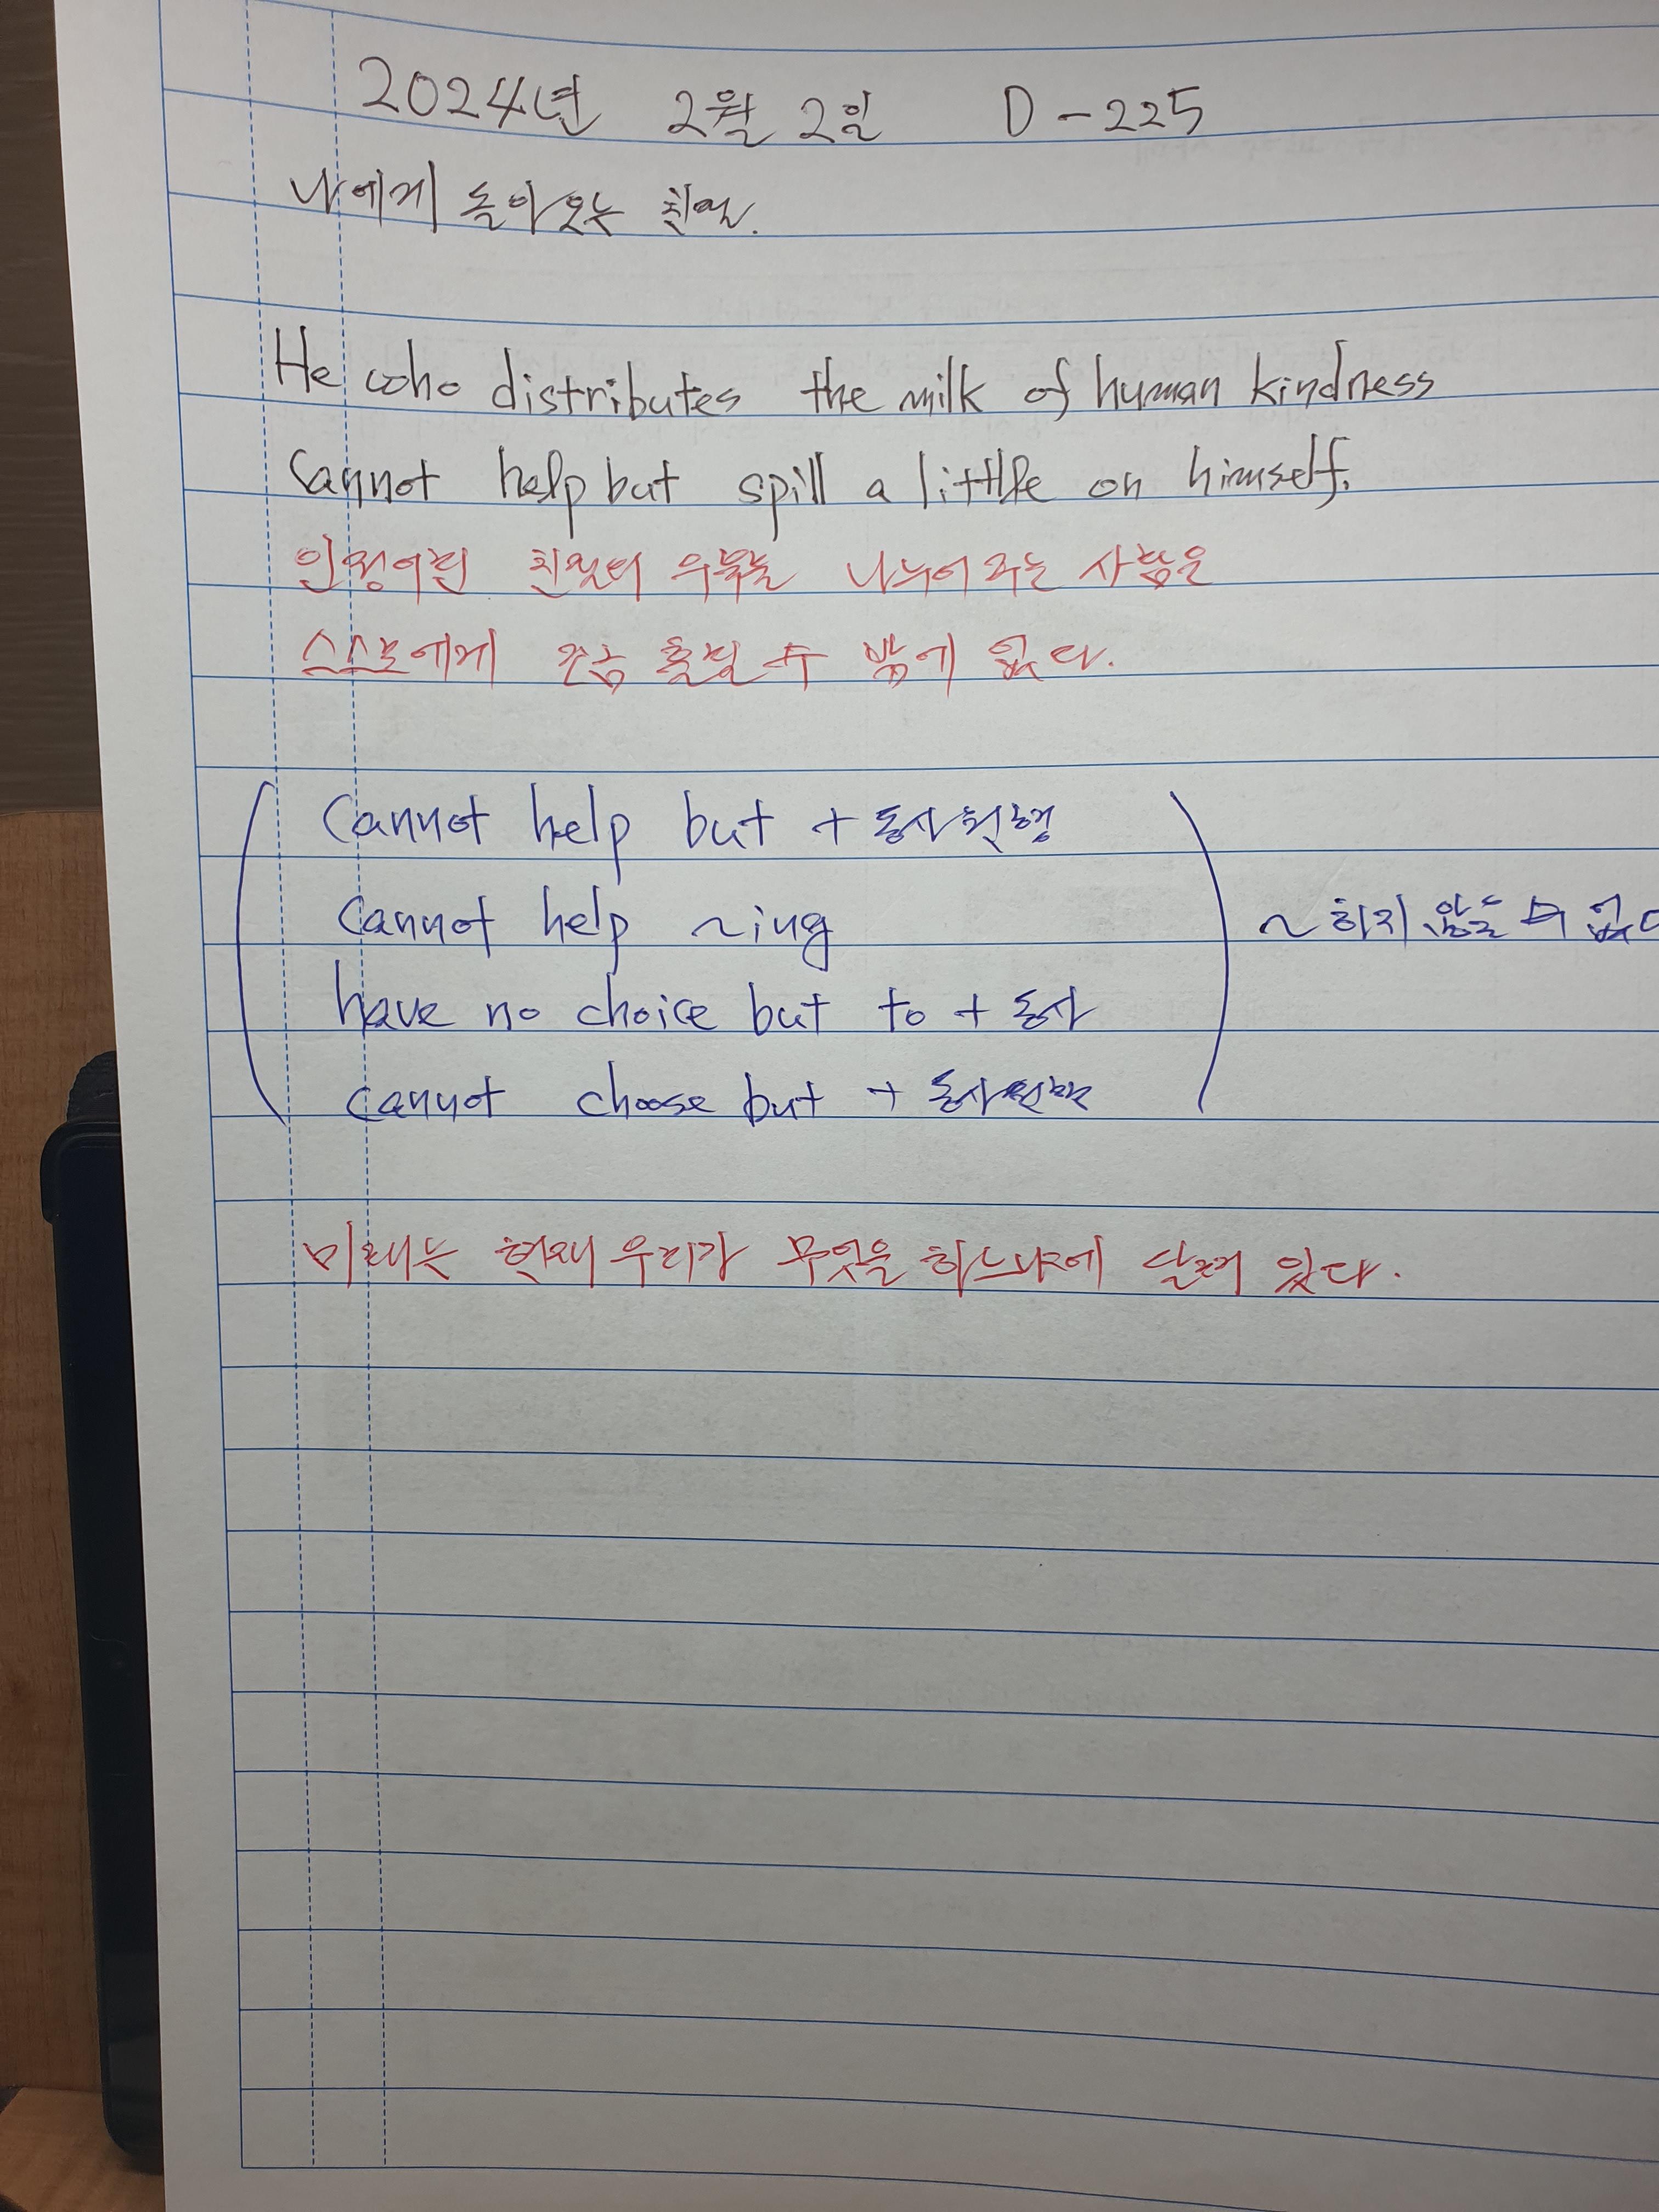 2024년 2월 2일 D-225
나에게 돌아오는 친절.
He who distributes the milk of human kindness
cannot help but spill a little on himself.
인정어린 친절의 우유를 나누어 주는 사람은
스스로에게 조금 흘릴 수 밖에 없다.
cannot help but + 동사원형
cannot help ~ing
~하지 않을 수 없다
have no choice but to + 동사
cannot choose but + 동사원형
미래는 현재 우리가 무엇을 하느냐에 달려 있다.